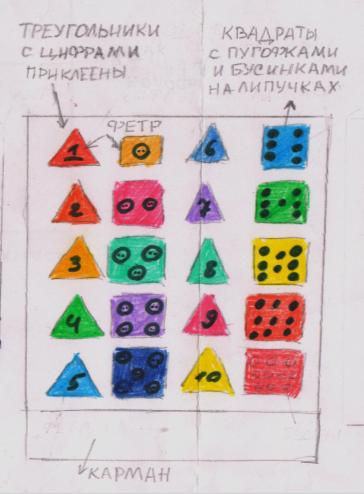 ТРЕУГОЛЬНИКИ
С ЦИФРАМИ
ПРИКЛЕЕНЫ
КВАДРАТЫ
С ПУГОВКАМИ
И БУСИНКАМИ
НА ЛИПУЧКАХ
ФЕТР
1
6
2
7
3
8
4
9
5
10
КАРМАН